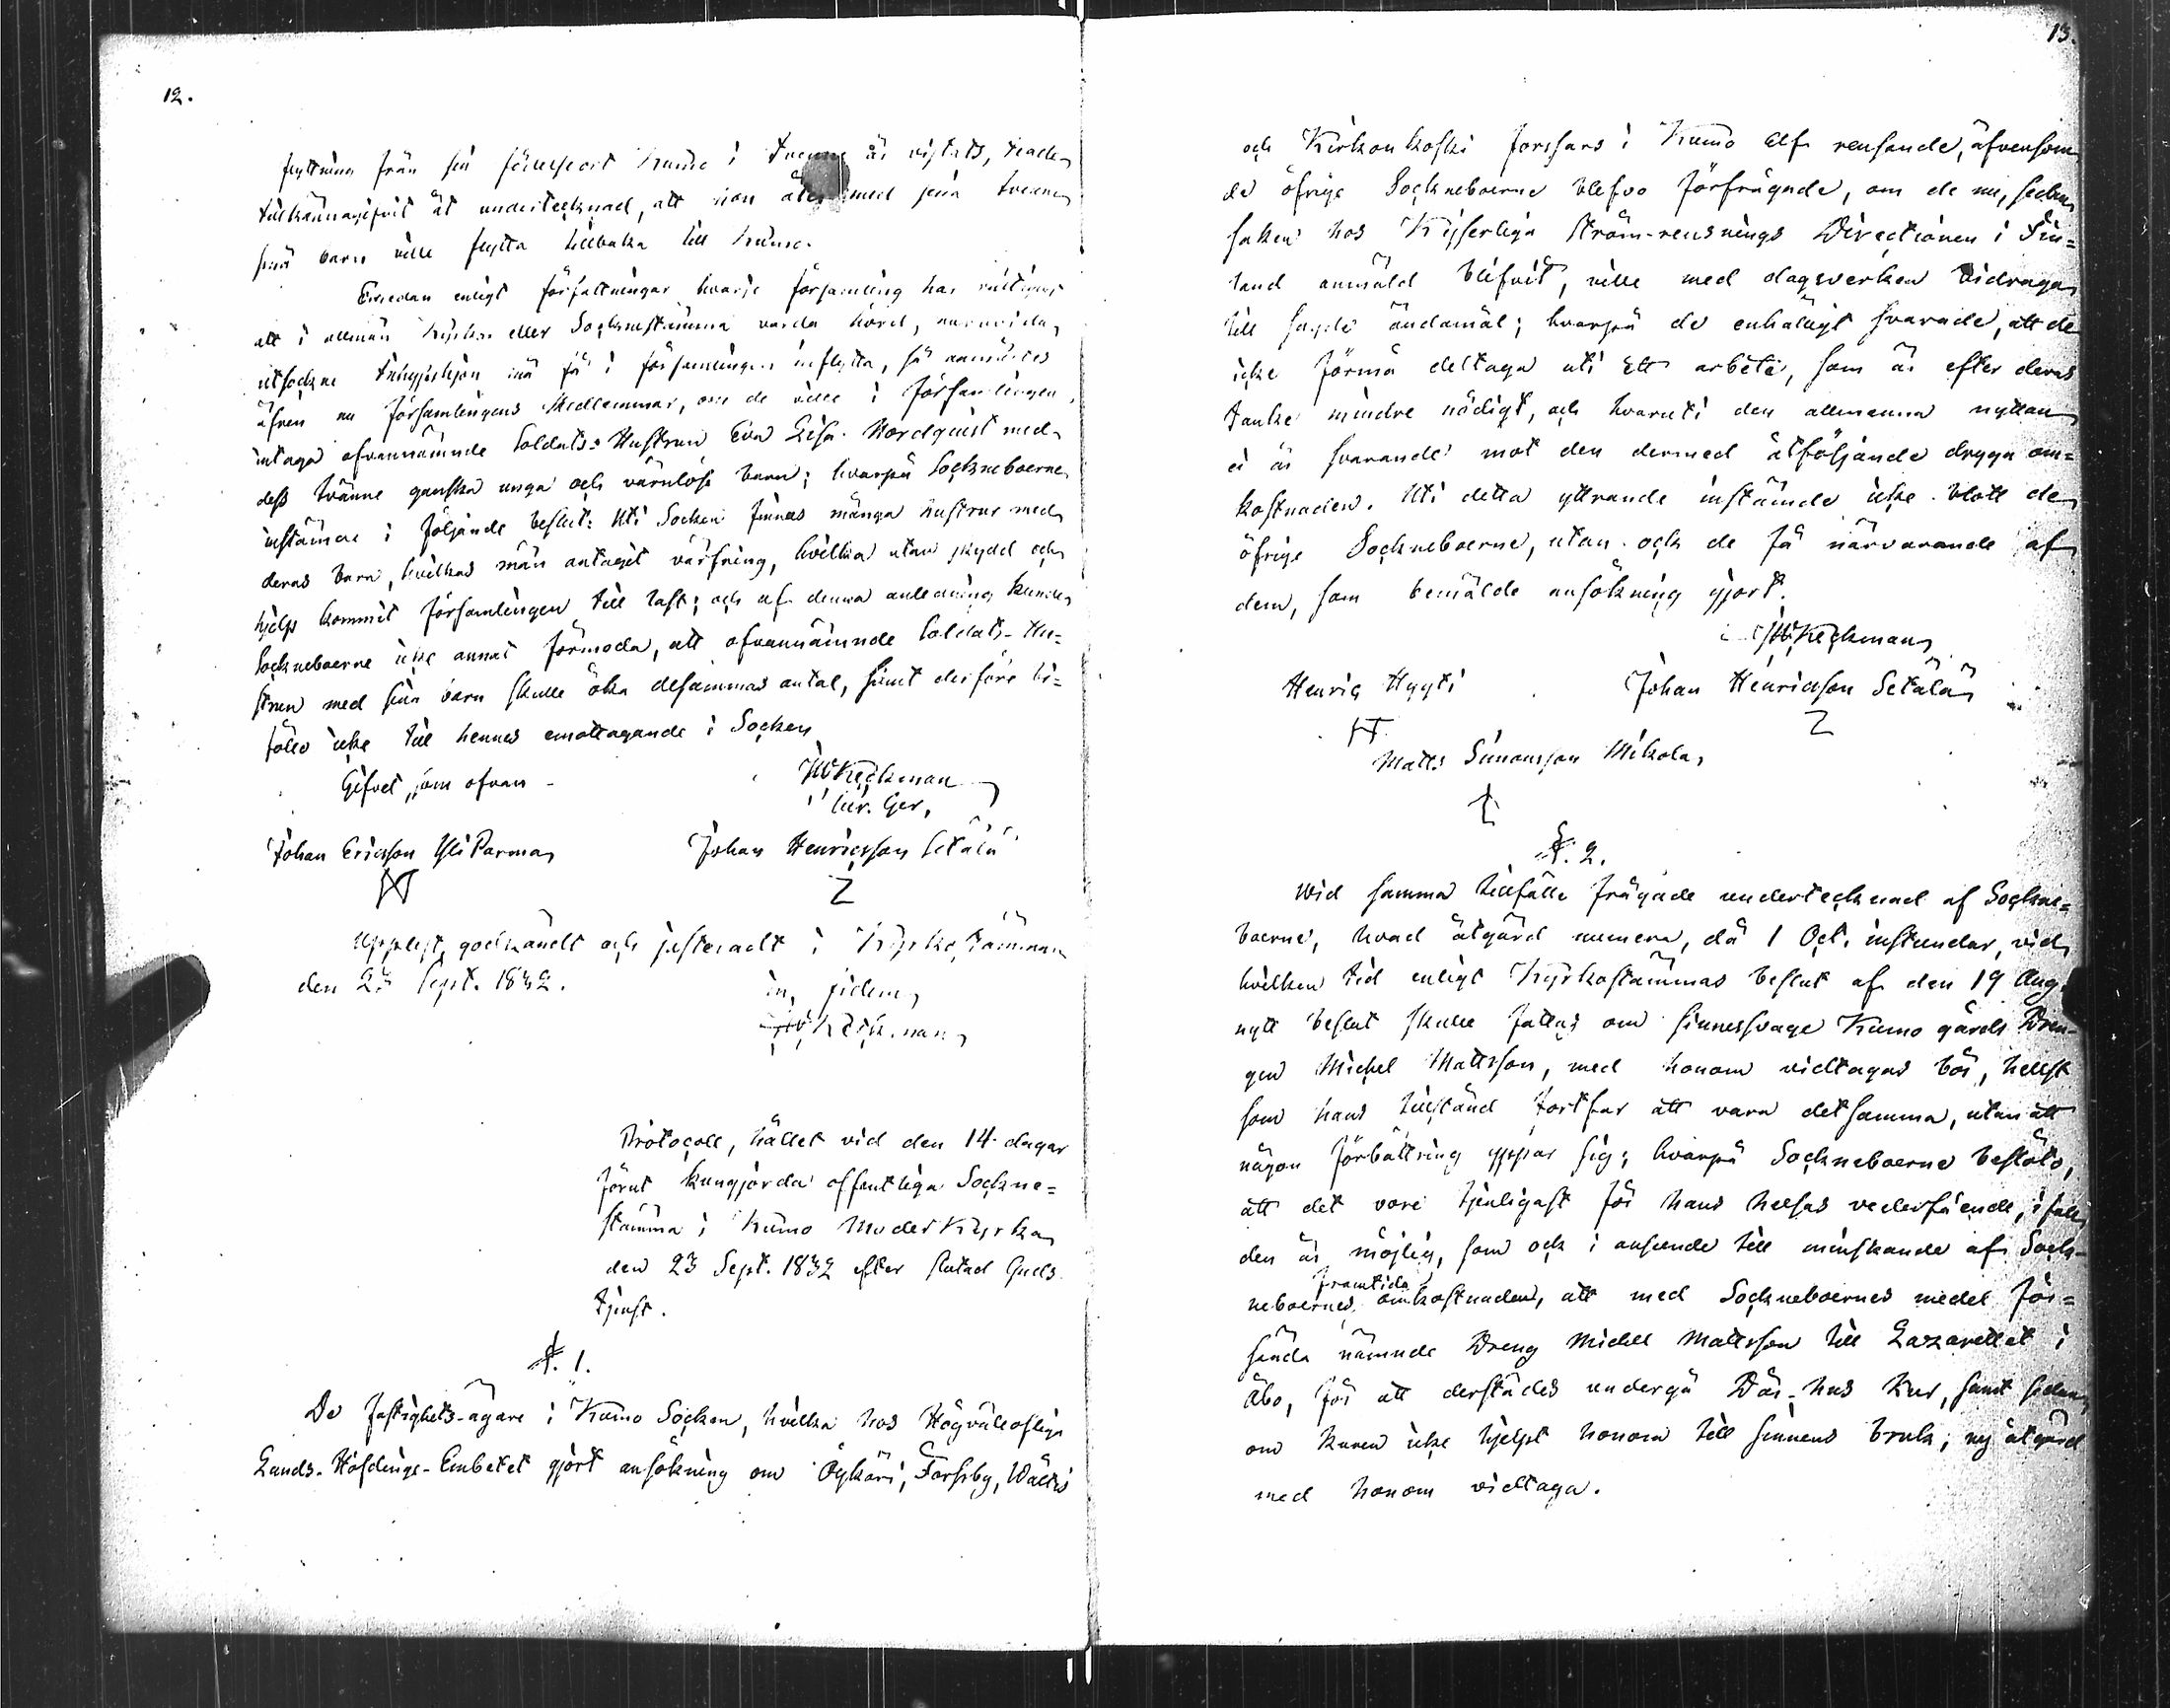 12.
flyttning från sin födelseort Kumo i tvenne år vistats, hade
tillkännagifvit åt undertecknad, att hon åter med sina tvenne
små barn ville flytta tillbaka till Kumo.
Emedan enligt författningar hvarje församling har rättighet
att i allmän Kyrko- eller Socknestämma varda hörd, huruvida
utsockne tenhjon må få i församlingen inflytta, så
äfven nu församlingens Medlemmar, om de ville i församlingen
intaga ofvannämnde Soldats-Hustrun Eva Lisa Nordquist med
dess tvänne ganska unga och värnlösa barn; hvarpå Sockneboerne
instämde i följande beslut: Uti Socken finnas många hustrur med
deras barn, hvilkas män antagit värfning, hvilka utan skydd och
hjelp kommit församlingen till last; och af denna anledning kunde
Sockneboerne icke annat förmoda, att ofvannämnde Soldats-Hu-
strun med sina barn skulle öka desammas antal, samt derföre bi-
föllo icke till hennes emottagande i Socken
Gifvet som ofvan
JW Keckman
Vice Ger.
Johan Ericsson Yli Parma
Johan Henricsson Setälä
Uppläst, godkändt och justeradt i Kyrkostämman
den 23 Sept. 1832.
in fidem
JW Keckman
Protocoll, hållet vid den 14 dagar
förut kungjorda offentliga Sockne-
stämma i Kumo Moderkyrka
den 23 Sept. 1832 efter slutad Guds
tjenst.
§. 1.
De fastighets-ägare i Kumo Socken, hvilka hos Högvälloflige
Lands-Höfdinge-Embetet gjort ansökning om Öykäri, Forsby, Wältis
13.
och Kirkonkoski forssars i Kumo Elf rensande, äfvensom
de öfrige Sockneboerne blefvo förfrågade, om de nu, sedan
saken hos Kejserliga Ström-rensnings Directionen i Fin-
land anmäld blifvit, ville med dagsverken bidraga
till sagde ändamål; hvarpå de enhälligt svarade, att de
icke förmå deltaga uti Ett arbete, som är efter deras
tanke mindre nödigt, och hvaruti den allmänna nyttan
ei är svarande mot den dermed åtföljande dryga om-
kostnaden. Uti detta yttrande instämde icke blott de
öfrige Sockneboerne, utan och de få närvarande af
dem, som bemälde ansökning gjort.
JW Keckman
Henric Hyyti
Johan Henricsson Setälä
Matts Simonsson Mikola
§. 2.
Wid samma tillfälle frågade undertecknad af Sockne-
boerne, hvad åtgärd numera, då 1 Oct. instundar, vid
hvilken tid enligt Kyrkostämmas beslut af den 19 Aug.
nytt beslut skulle fattas om sinnessvage Kumo gårds Dren-
gen Michel Mattsson, med honom vidtagas bör, helst
som hans tillstånd fortfar att vara detsamma, utan att
någon förbättring yppar sig; hvarpå Sockneboerne beslöto,
att det vore tjenligast för hans helsas vederfående, ifall
den är möjlig, som och i anseende till minskande af Sock-
neboernes framtida omkostnader, att med Sockneboernes medel för-
sända nämnde Dreng Michel Mattsson till Lazarettet i
Åbo, för att derstädes undergå Dår-hus Kur, samt sedan
om Kuren icke hjelpt honom till sinnens bruk; ny åtgärd
med honom vidtaga.